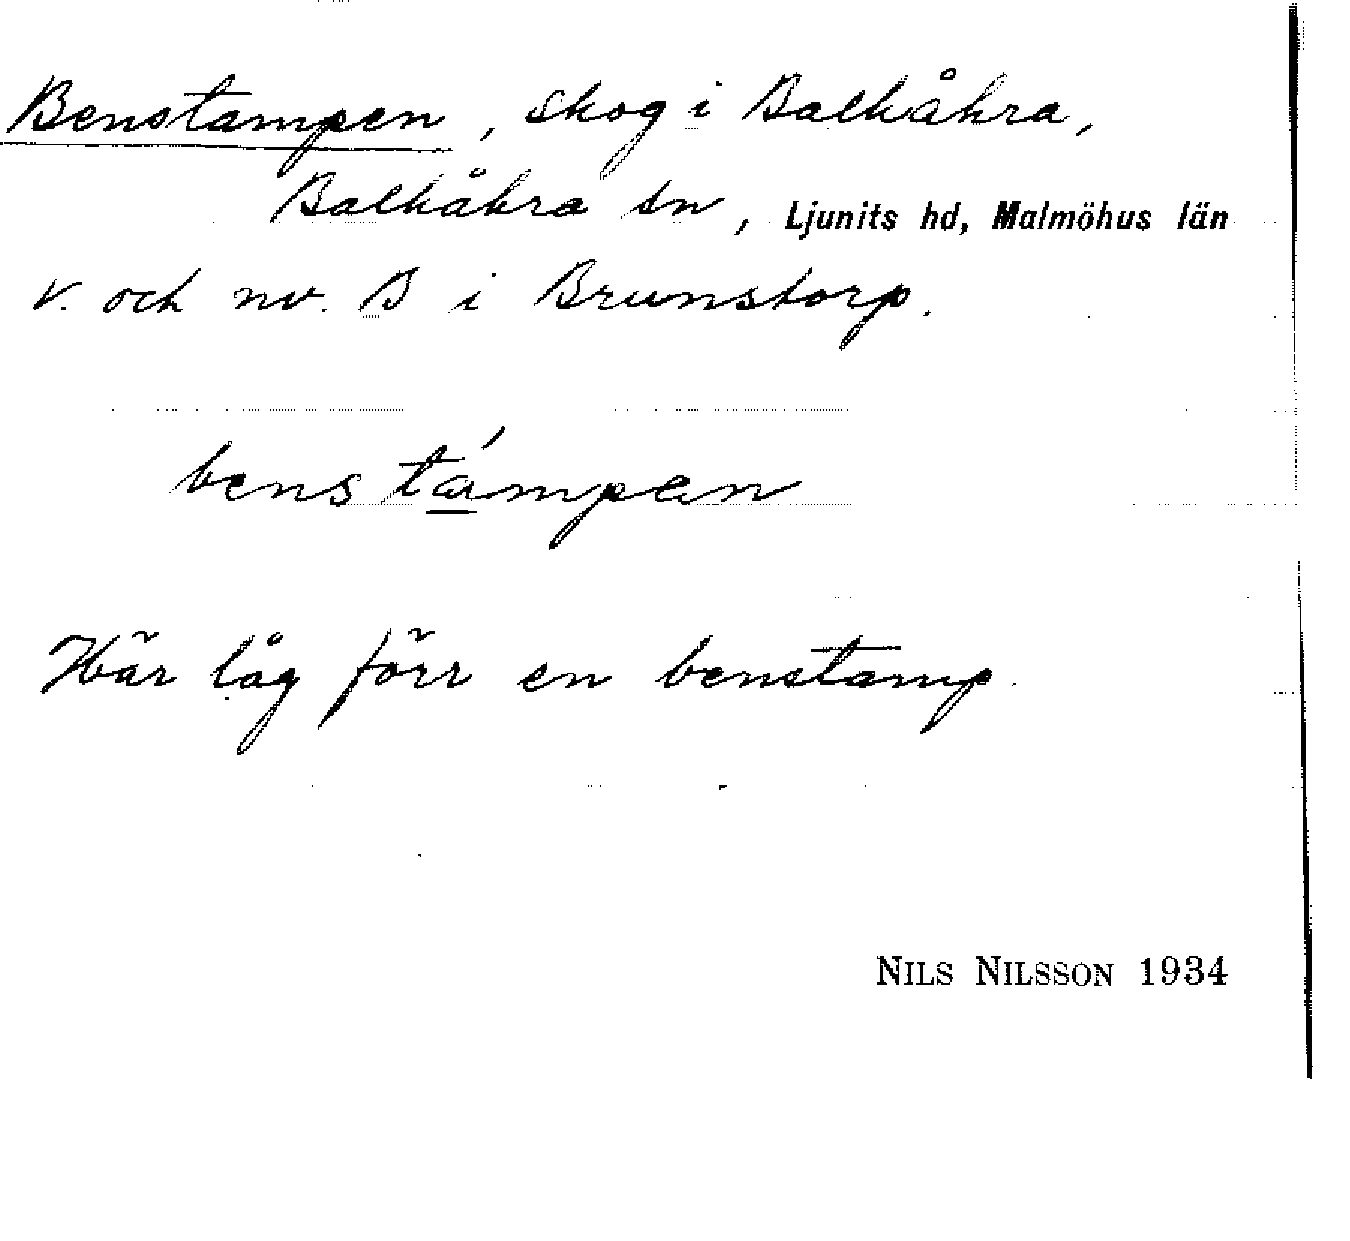 Benstampen, skog i Balkåkra,
Balkåkra sn, Ljunits hd, Malmöhus län
V. och nv. B i Brunstorp.
benstámpen
Här låg förr en benstamp.
NILS NILSSON 1934